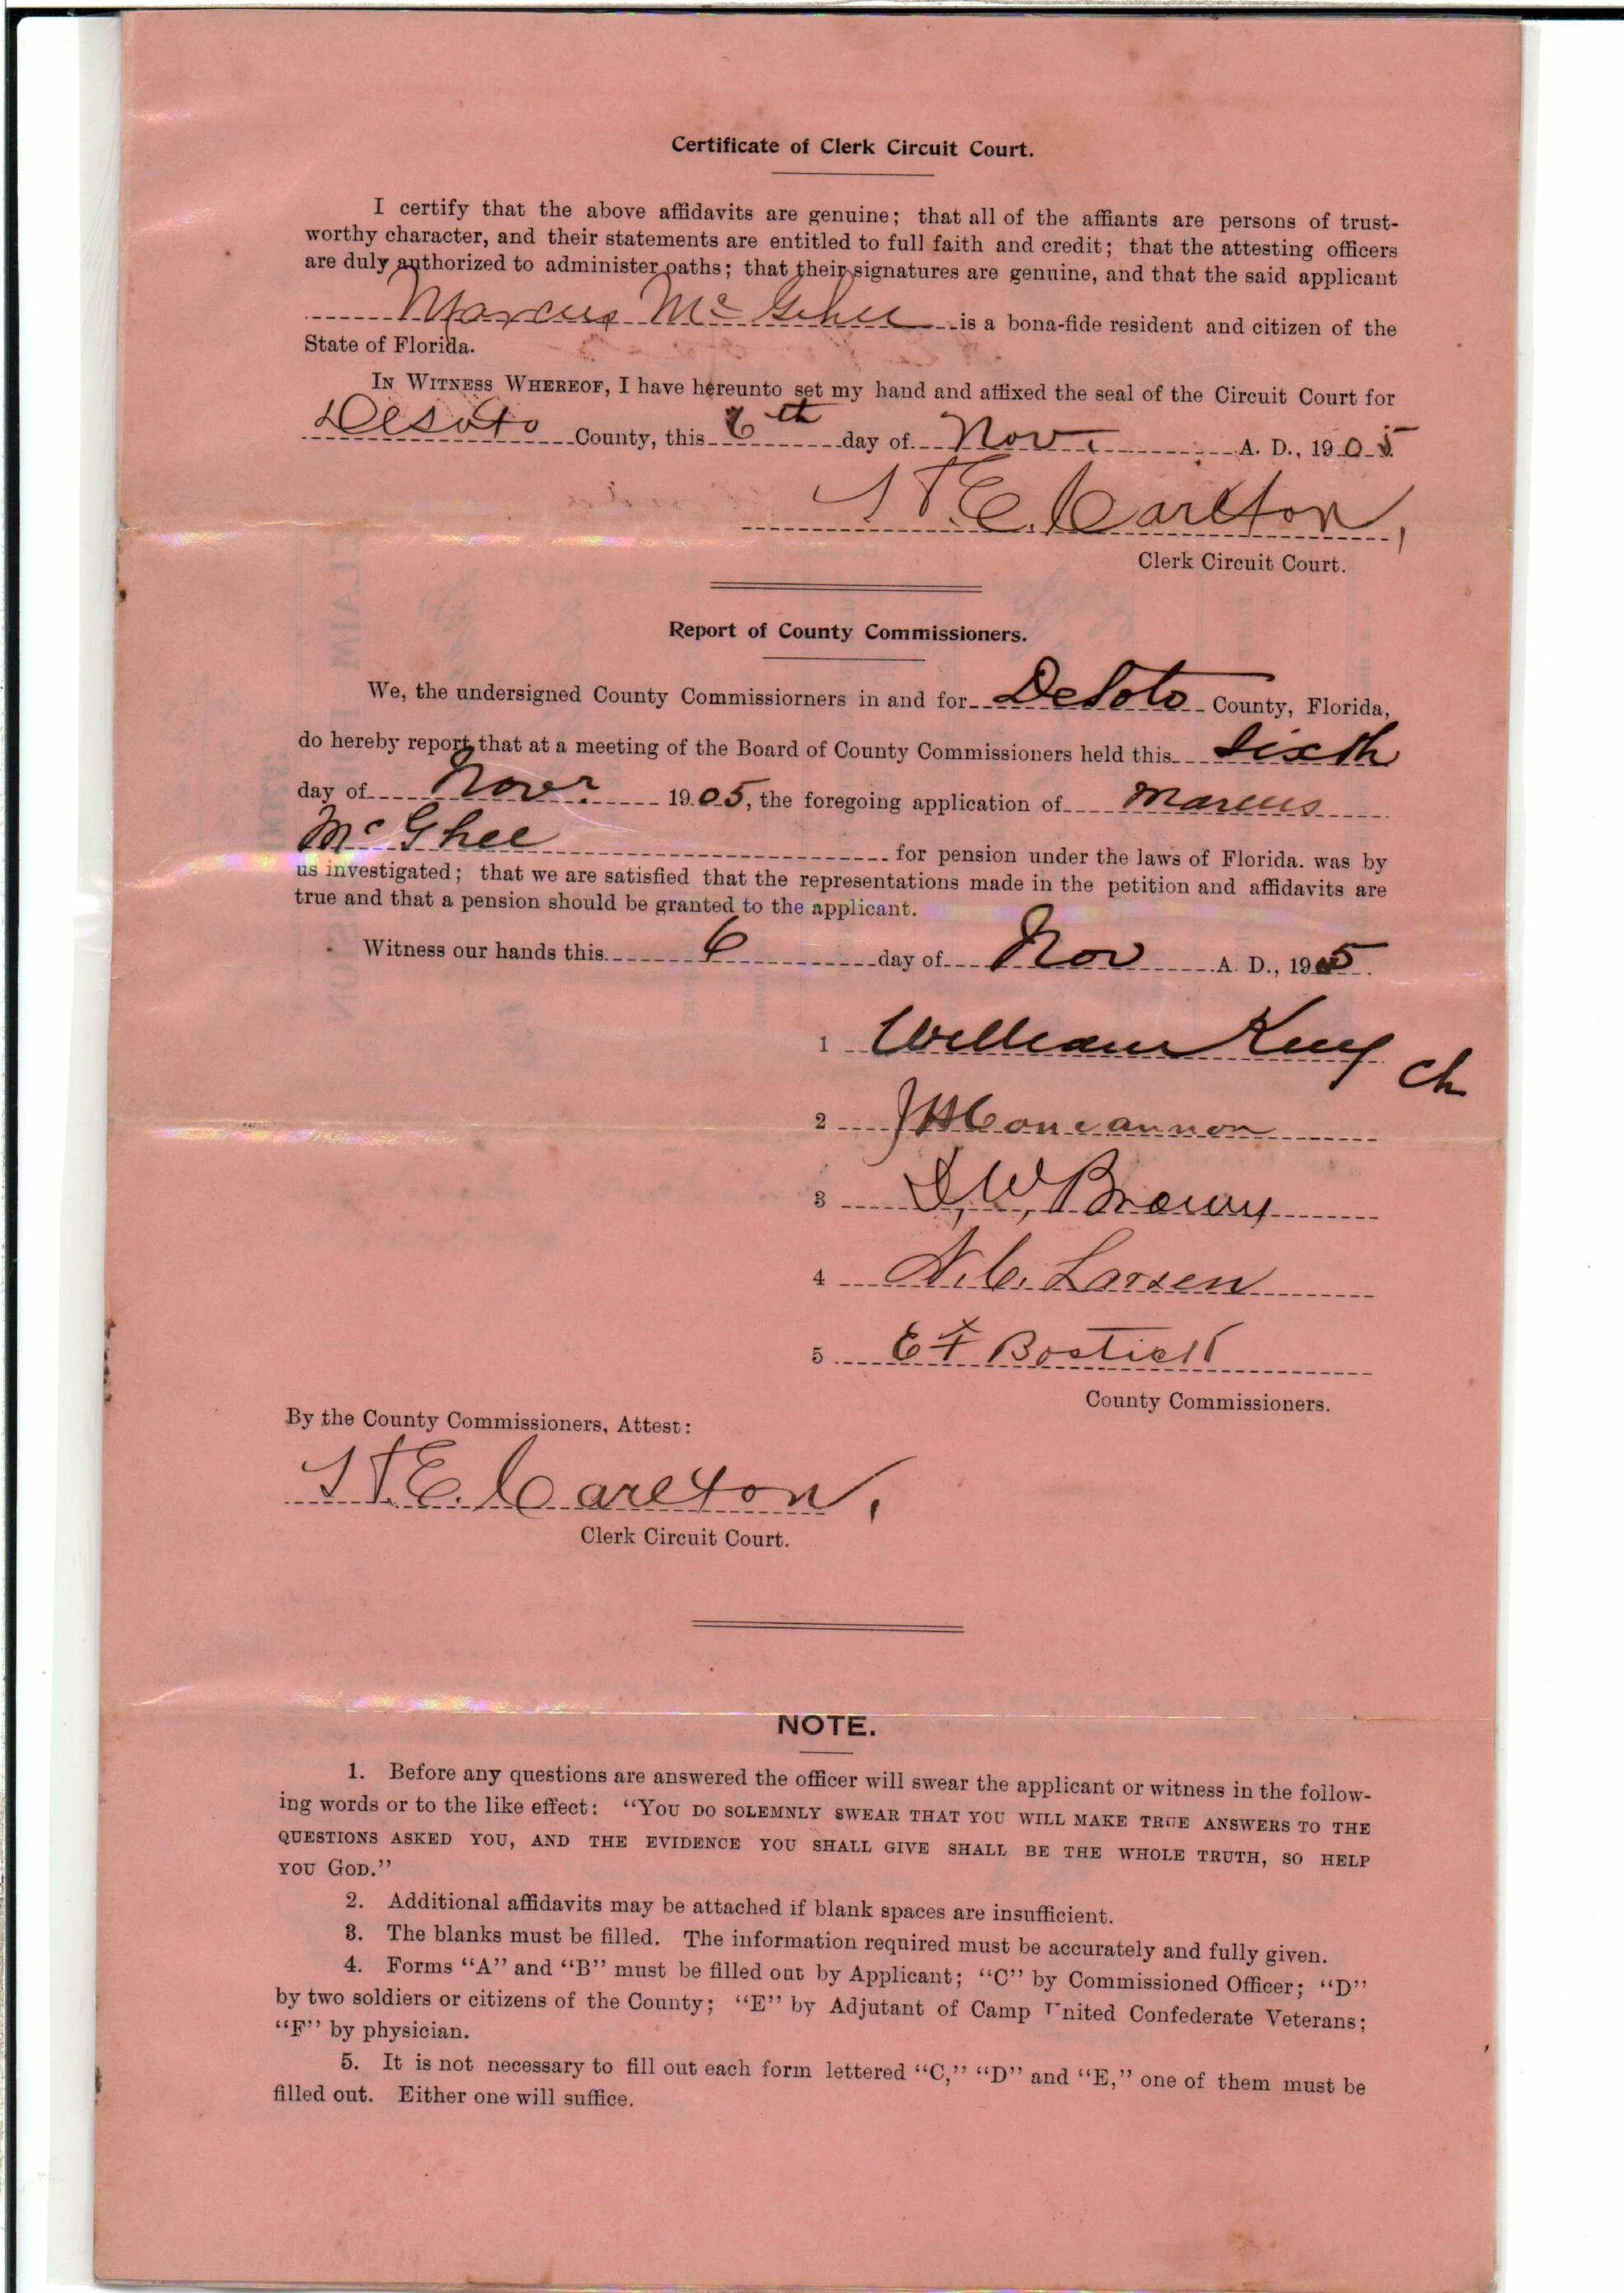 Certificate of Clerk Circuit Court.
I certify that the above affidavits are genuine; that all of the affiants are persons of trust-
worthy character, and their statements are entitled to full faith and credit; that the attesting officers
are duly authorized to administer oaths; that their signatures are genuine, and that the said applicant
Marcus McGehee is a bona-fide resident and citizen of the
State of Florida.
IN WITNESS WHEREOF, I have hereunto set my hand and affixed the seal of the Circuit Court for
Desoto County, this 6th day of Nov. A. D., 1905
S T. E. Carlton,
Clerk Circuit Court.
Report of County Commissioners.
We, the undersigned County Commissiorners in and for DeSoto County, Florida,
do hereby report that at a meeting of the Board of County Commissioners held this Sixth
day of Novr 1905, the foregoing application of Marcus
McGhee for pension under the laws of Florida. was by
us investigated; that we are satisfied that the representations made in the petition and affidavits are
true and that a pension should be granted to the applicant.
Witness our hands this 6 day of Nov A. D., 1905.
1 William King Ch
2 JH Concannon
3 D, W, Brown
4 N. C. Larsen
5 E F Bostick
County Commissioners.
By the County Commissioners, Attest:
S T. E. Carlton,
Clerk Circuit Court.
NOTE.
1. Before any questions are answered the officer will swear the applicant or witness in the follow-
ing words or to the like effect: "YOU DO SOLEMNLY SWEAR THAT YOU WILL MAKE TRUE ANSWERS TO THE
QUESTIONS ASKED YOU, AND THE EVIDENCE YOU SHALL GIVE SHALL BE THE WHOLE TRUTH, SO HELP
YOU GOD."
2. Additional affidavits may be attached if blank spaces are insufficient.
3. The blanks must be filled. The information required must be accurately and fully given.
4. Forms "A" and "B" must be filled out by Applicant; "C" by Commissioned Officer; "D"
by two soldiers or citizens of the County; "E" by Adjutant of Camp United Confederate Veterans;
"F" by physician.
5. It is not necessary to fill out each form lettered "C," "D" and "E," one of them must be
filled out. Either one will suffice.